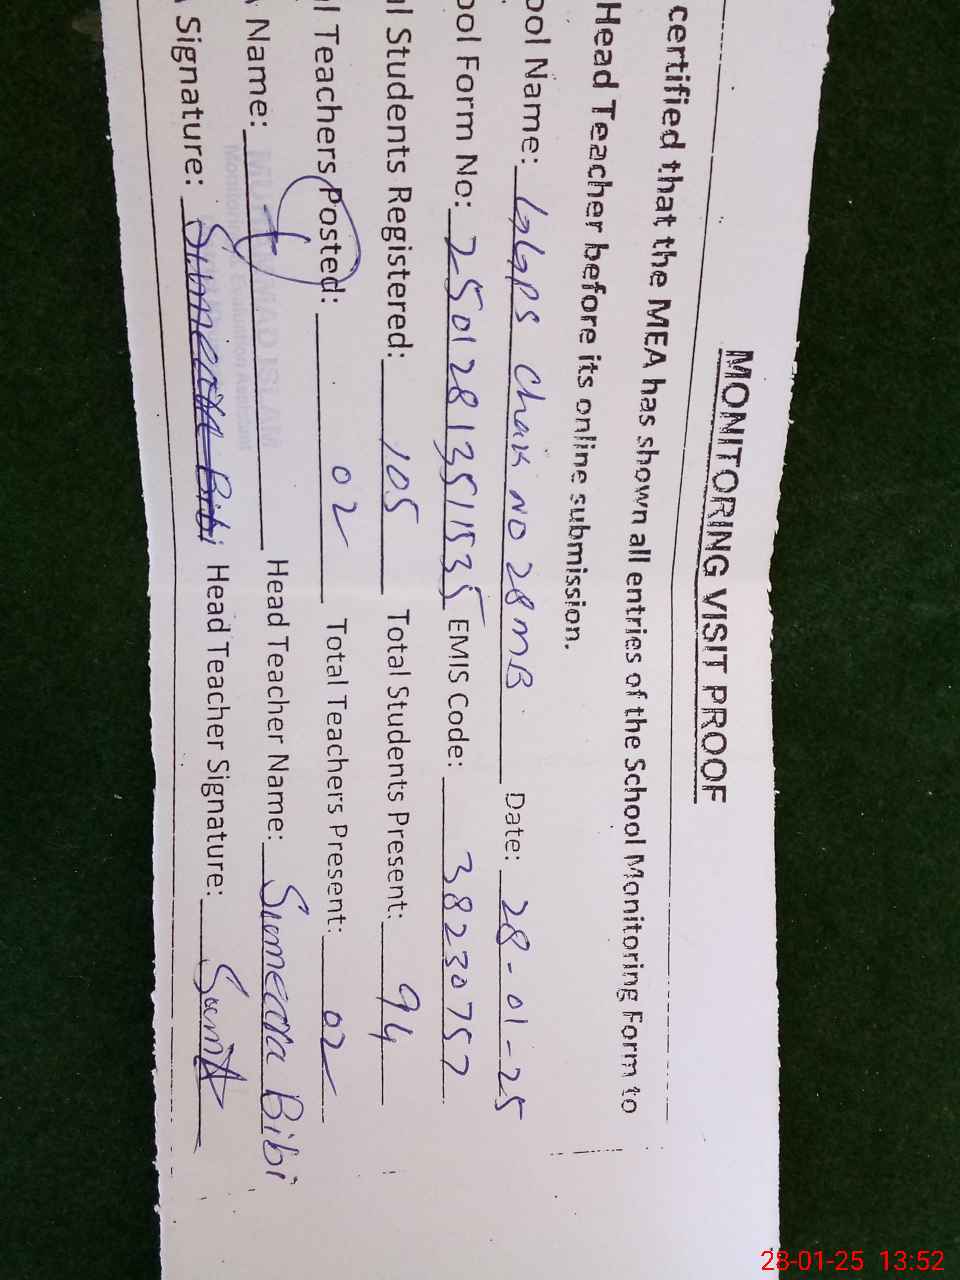 MONITORING VISIT PROOF
certified that the MEA has shown all entries of the School Monitoring Form to
Head Teacher before its online submission.
ool Name: GGPS Chak NO 28 MB Date: 28-01-25
ool Form No: 25012813511535 EMIS Code: 38230757
al Students Registered: 105 Total Students Present: 94
al Teachers Posted: 02 Total Teachers Present: 02
A Name: Head Teacher Name: Sumeera Bibi
A Signature: Sumeera Bibi Head Teacher Signature:
28-01-25 13:52